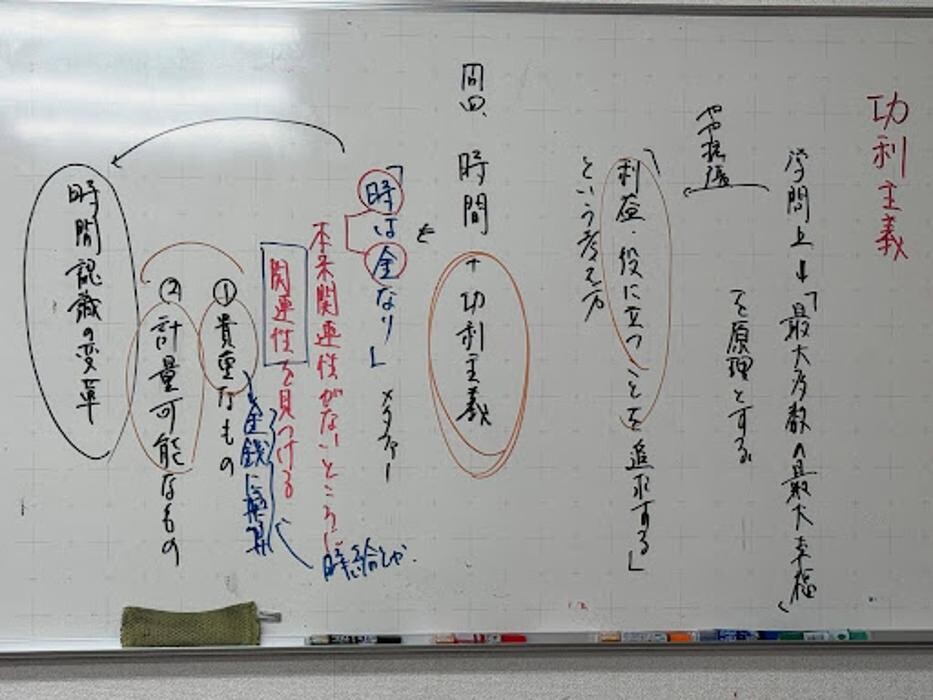 功利主義
学問上→「最大多数の最大幸福」
を原理とする。
やや拡張
「利益・役に立つことを追求する」
という考え方
問四、時間+功利主義
を
「時は金なり」メタファー
本来関連性がないところに
関連性を見つける
時給とか.
金銭に換算
①貴重なもの
②計量可能なもの
時間認識の変革